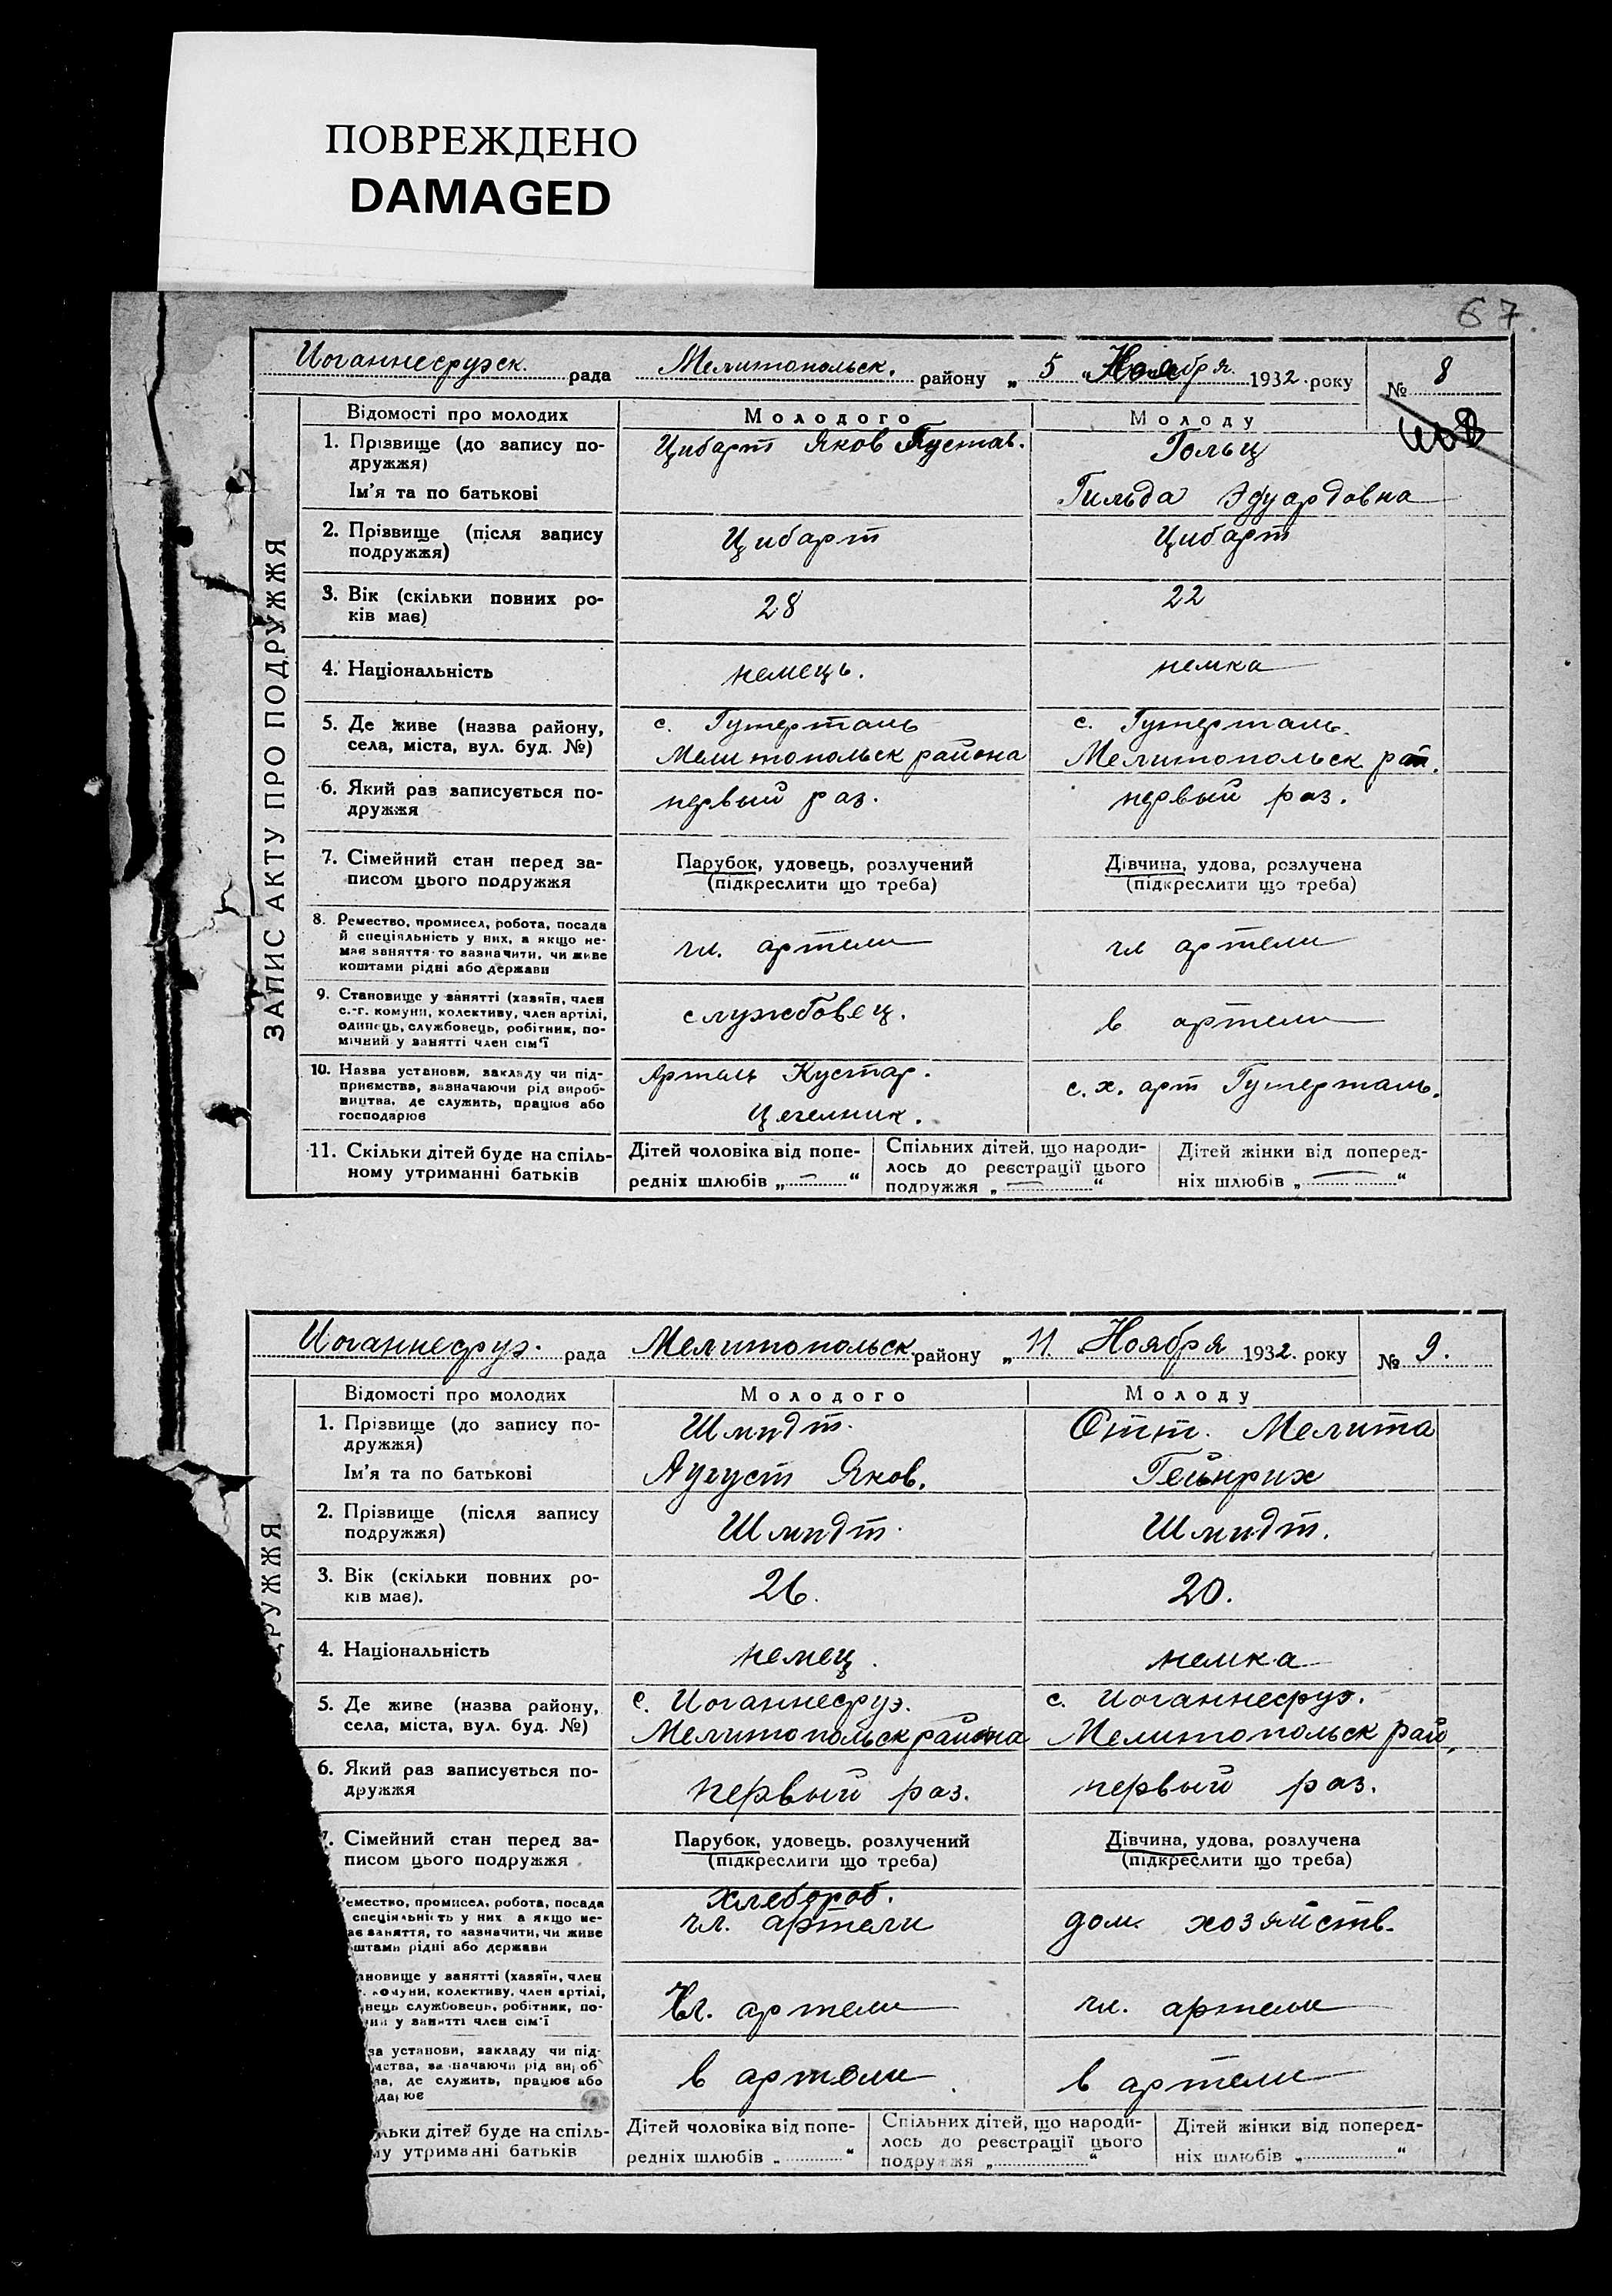 ПОВРЕЖДЕНО
DAMAGED
67
Иоганнесрузск. рада Мелитопольск. району „ 5 „ Ноября 1932. року № 8
ЗАПИС АКТУ ПРО ПОДРУЖЖЯ
Відомості про молодих Молодого Молоду
1. Прізвище (до запису по-
дружжя)
Ім'я та по батькові
Цибарт Яков Густав.
Гольц
Гильда Эдуардовна
2. Прізвище (після запису
подружжя)
Цибарт
Цибарт
3. Вік (скільки повних ро-
ків має)
28
22
4. Національність
немець.
немка
5. Де живе (назва району,
села, міста, вул. буд. №)
с. Гутерталь
Мелитопольск района
с. Гутерталь.
Мелитопольск рай.
6. Який раз записується по-
дружжя
первый раз.
первый раз.
7. Сімейний стан перед за-
писом цього подружжя
Парубок, удовець, розлучений
(підкреслити що треба)
Дівчина, удова, розлучена
(підкреслити що треба)
8. Ремество, промисел, робота, посада
й спеціяльність у них, а якщо не-
має заняття-то зазначити, чи живе
коштами рідні або держави
чл. артели
чл артели
9. Становище у занятті (хазяїн, член
с.-г. комуни, колективу, член артілі,
одинець, службовець, робітник, по-
мічний у занятті член сім'ї
службовец.
в артели
10. Назва установи, закладу чи під-
приємства, зазначаючи рід вироб-
ництва, де служить, працює або
господарює
Артель Кустар.
Цегельник.
с. х. арт Гутерталь.
11. Скільки дітей буде на спіль-
ному утриманні батьків
Дітей чоловіка від попе-
редніх шлюбів „ — “
Спільних дітей, що народи-
лось до реєстрації цього
подружжя „ — “
Дітей жінки від поперед-
ніх шлюбів „ — “
Иоганнесруэ. рада Мелитопольск. району „ 11. Ноября 1932. року № 9.
ДРУЖЖЯ
Відомості про молодих Молодого Молоду
1. Прізвище (до запису по-
дружжя)
Ім'я та по батькові
Шмидт.
Август Яков.
Отт. Мелита
Гейнрих
2. Прізвище (після запису
подружжя)
Шмидт.
Шмидт.
3. Вік (скільки повних ро-
ків має).
26.
20.
4. Національність
немец.
немка
5. Де живе (назва району,
села, міста, вул. буд. №)
с. Иоганнесруэ.
Мелитопольск района
с. Иоганнесруэ.
Мелитопольск рай.
6. Який раз записується по-
дружжя
первый раз.
первый раз.
7. Сімейний стан перед за-
писом цього подружжя
Парубок, удовець, розлучений
(підкреслити що треба)
Дівчина, удова, розлучена
(підкреслити що треба)
емество, промисел, робота, посада
спеціяльність у них а якщо не-
ає заняття, то зазначити, чи живе
штами рідні або держави
хлебороб.
чл. артели
дом. хозяйств.
ановище у занятті (хазяїн, член
г. комуни, колективу, член артілі,
нець службовець, робітник, по-
ний у занятті член сім'ї
Чл. артели
чл. артели
ва установи, закладу чи під-
мства, зазначаючи рід вироб
ва, де служить, працює або
дарює
в артели
в артели
льки дітей буде на спіль-
му утриманні батьків
Дітей чоловіка від попе-
редніх шлюбів „ “
Спільних дітей, що народи-
лось до реєстрації цього
подружжя „ “
Дітей жінки від поперед-
ніх шлюбів „ “